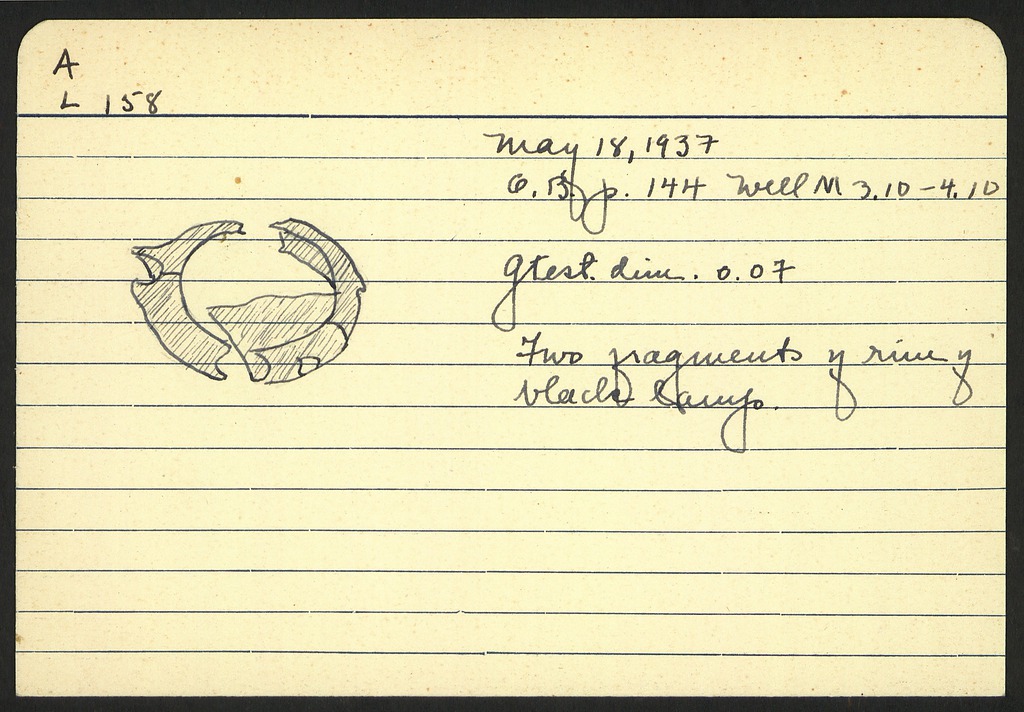 A
L 158
May 18, 1937
O.B. p. 144 Well M 3.10-4.10
Gtest. dim. 0.07
Two fragments of rim of
black lamp.